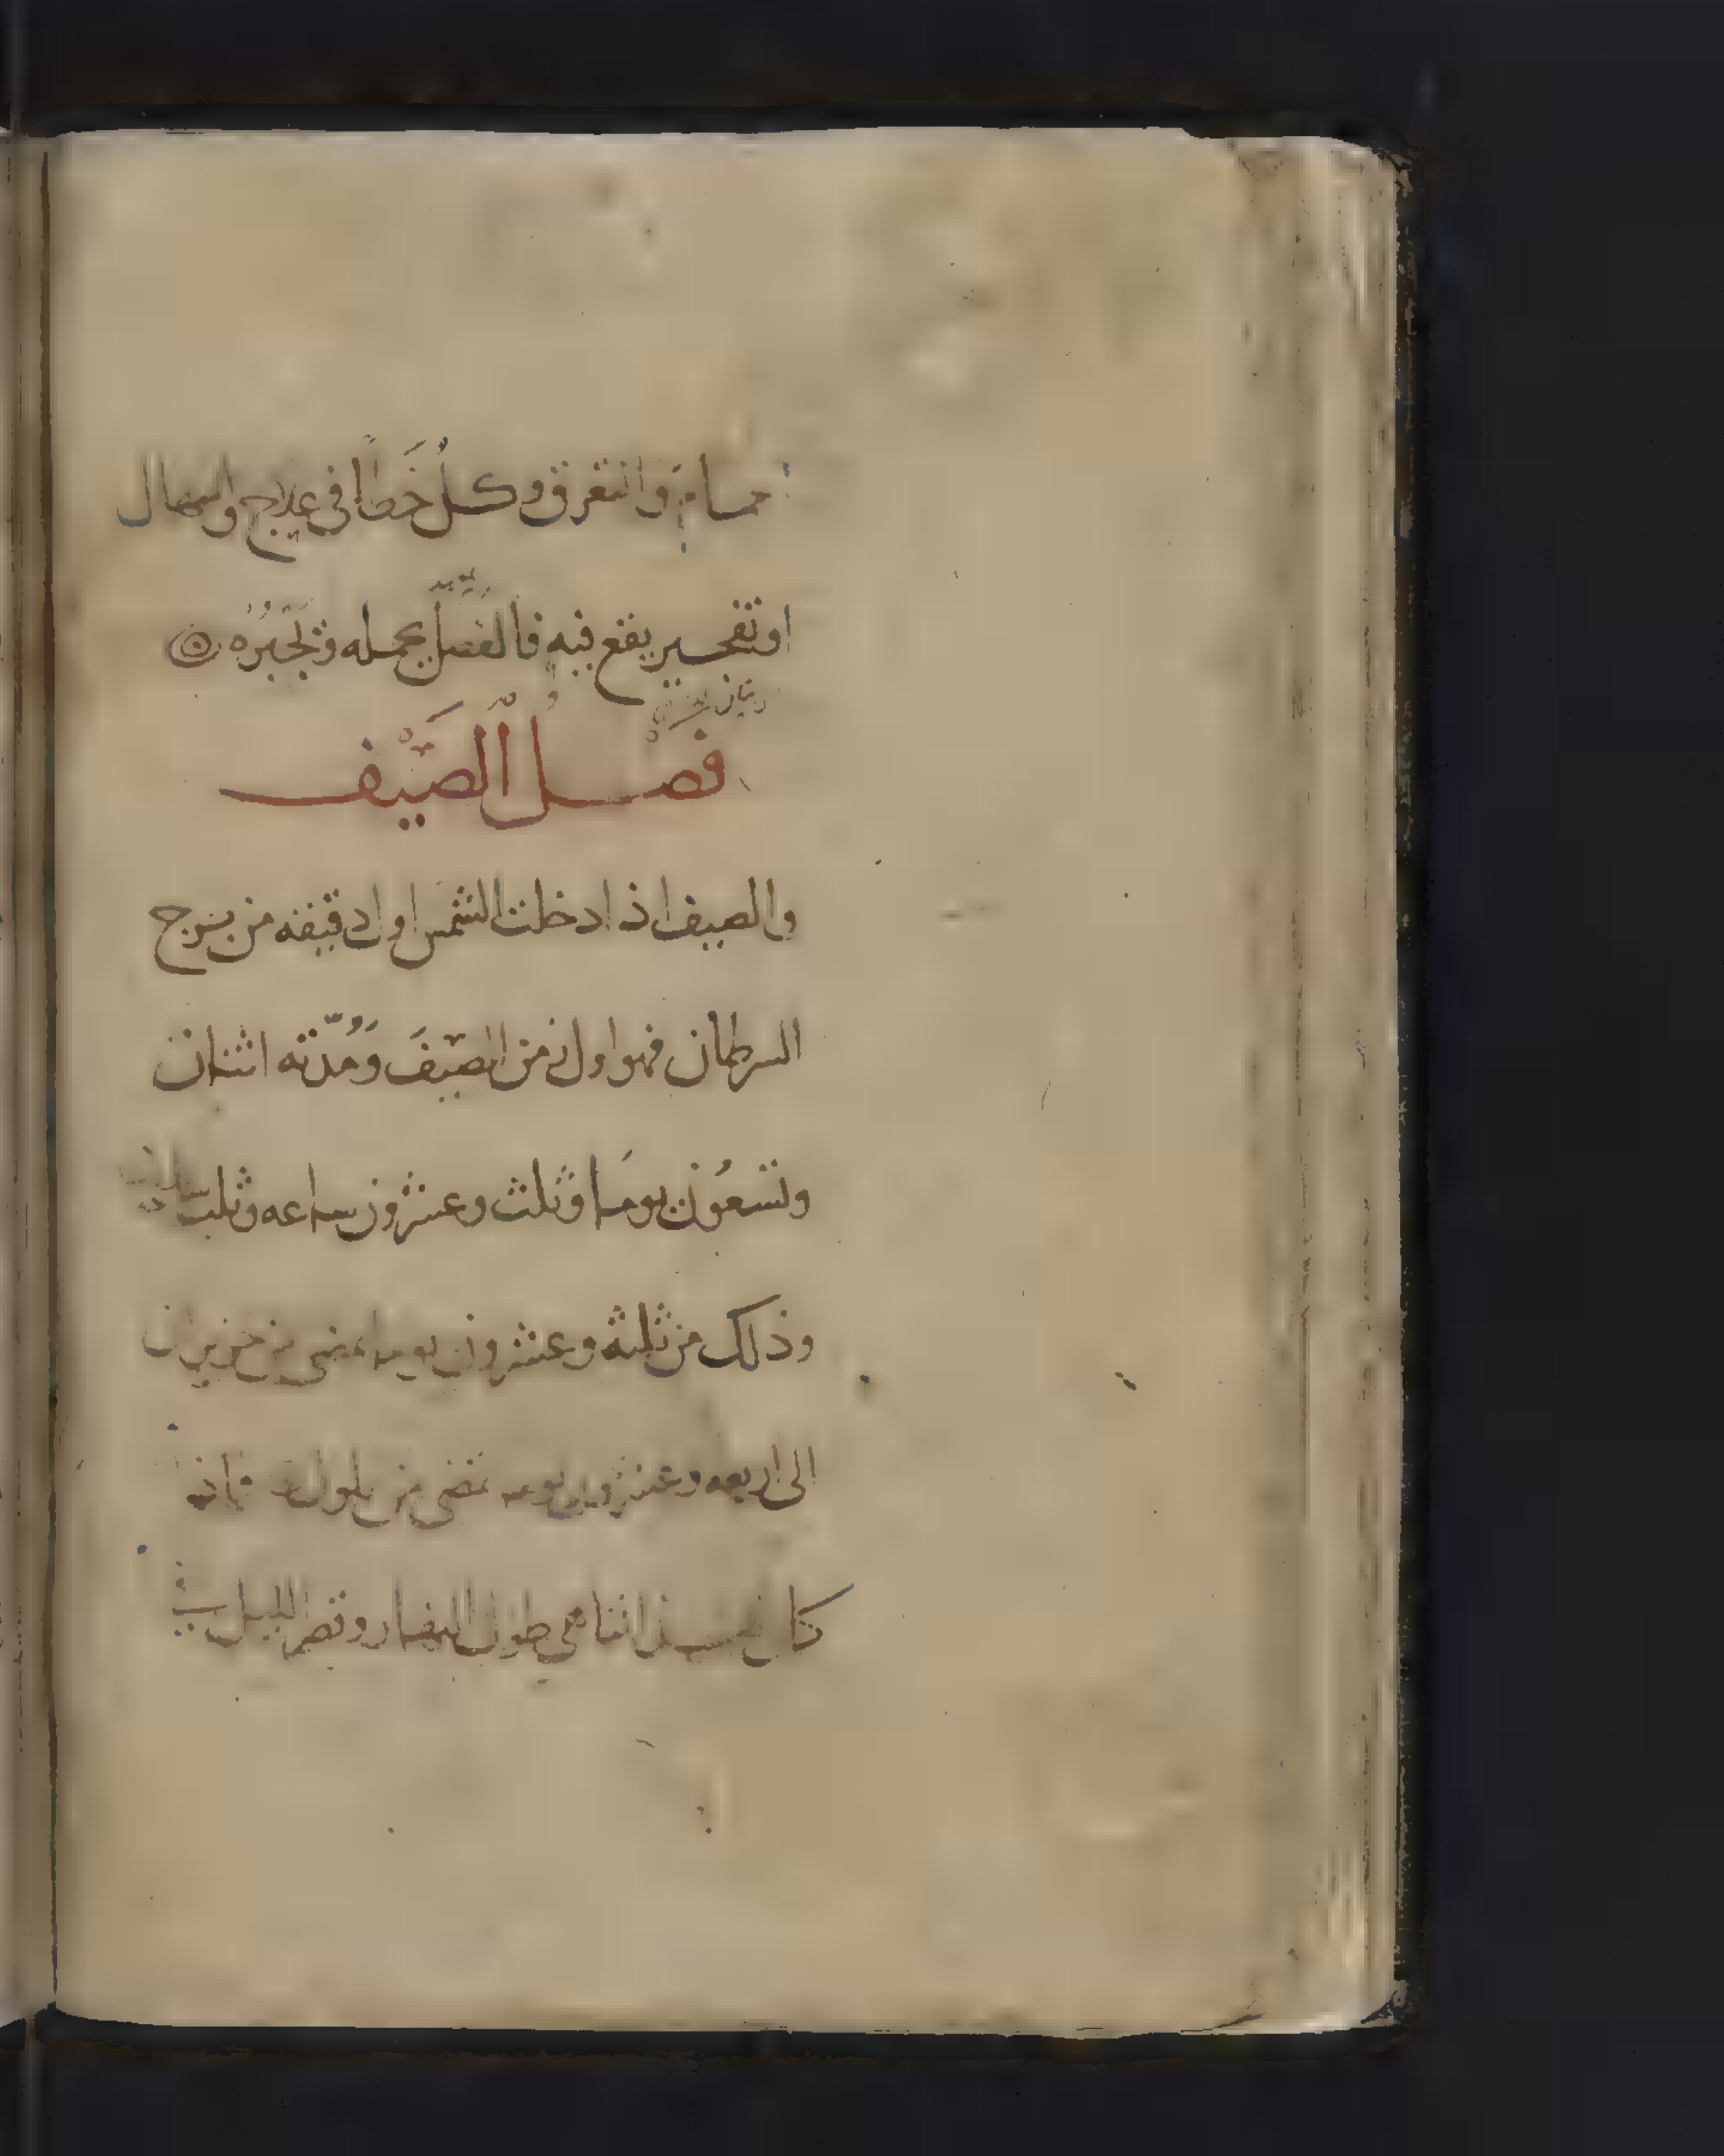 حمام والتعرق وكلُ خَطأ في علاج واسهال
او تقصير يقع فيه فالفصل يحمله وَيَجْبُرُه
فصْل الصَّيْف
والصيف اذا دخلت الشمس اول دقيقه من برج
السرطان فهو اول زمن الصَّيف وَمُدّته اثنتان
وتسعُون يومَا وثلث وعشرون ساعه وثلث
وذلك من ثلثه وعشرون يوما تمضى من حزيران
الى اربعه وعشرون يوما تمضى من ايلول
كان طول النهار وقصر الليل